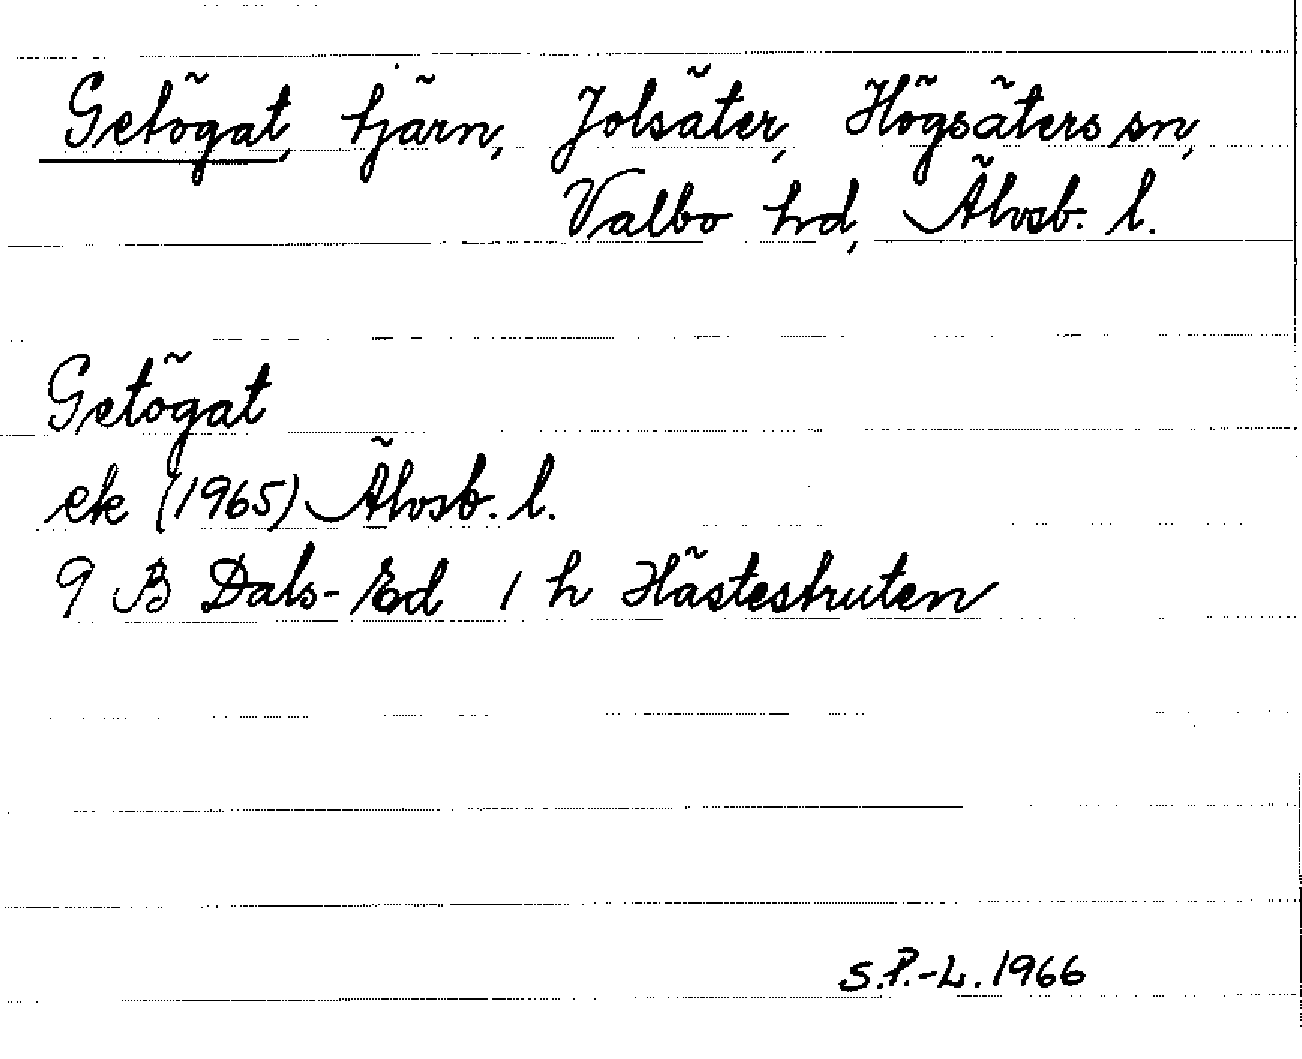 Getögat, tjärn, Jolsäter, Högsäters sn,
Valbo hd, Älvsb. l.
Getögat
ek (1965) Älvsb. l.
9 B Dals-Ed 1 h Hästestruten
S.P.-L. 1966